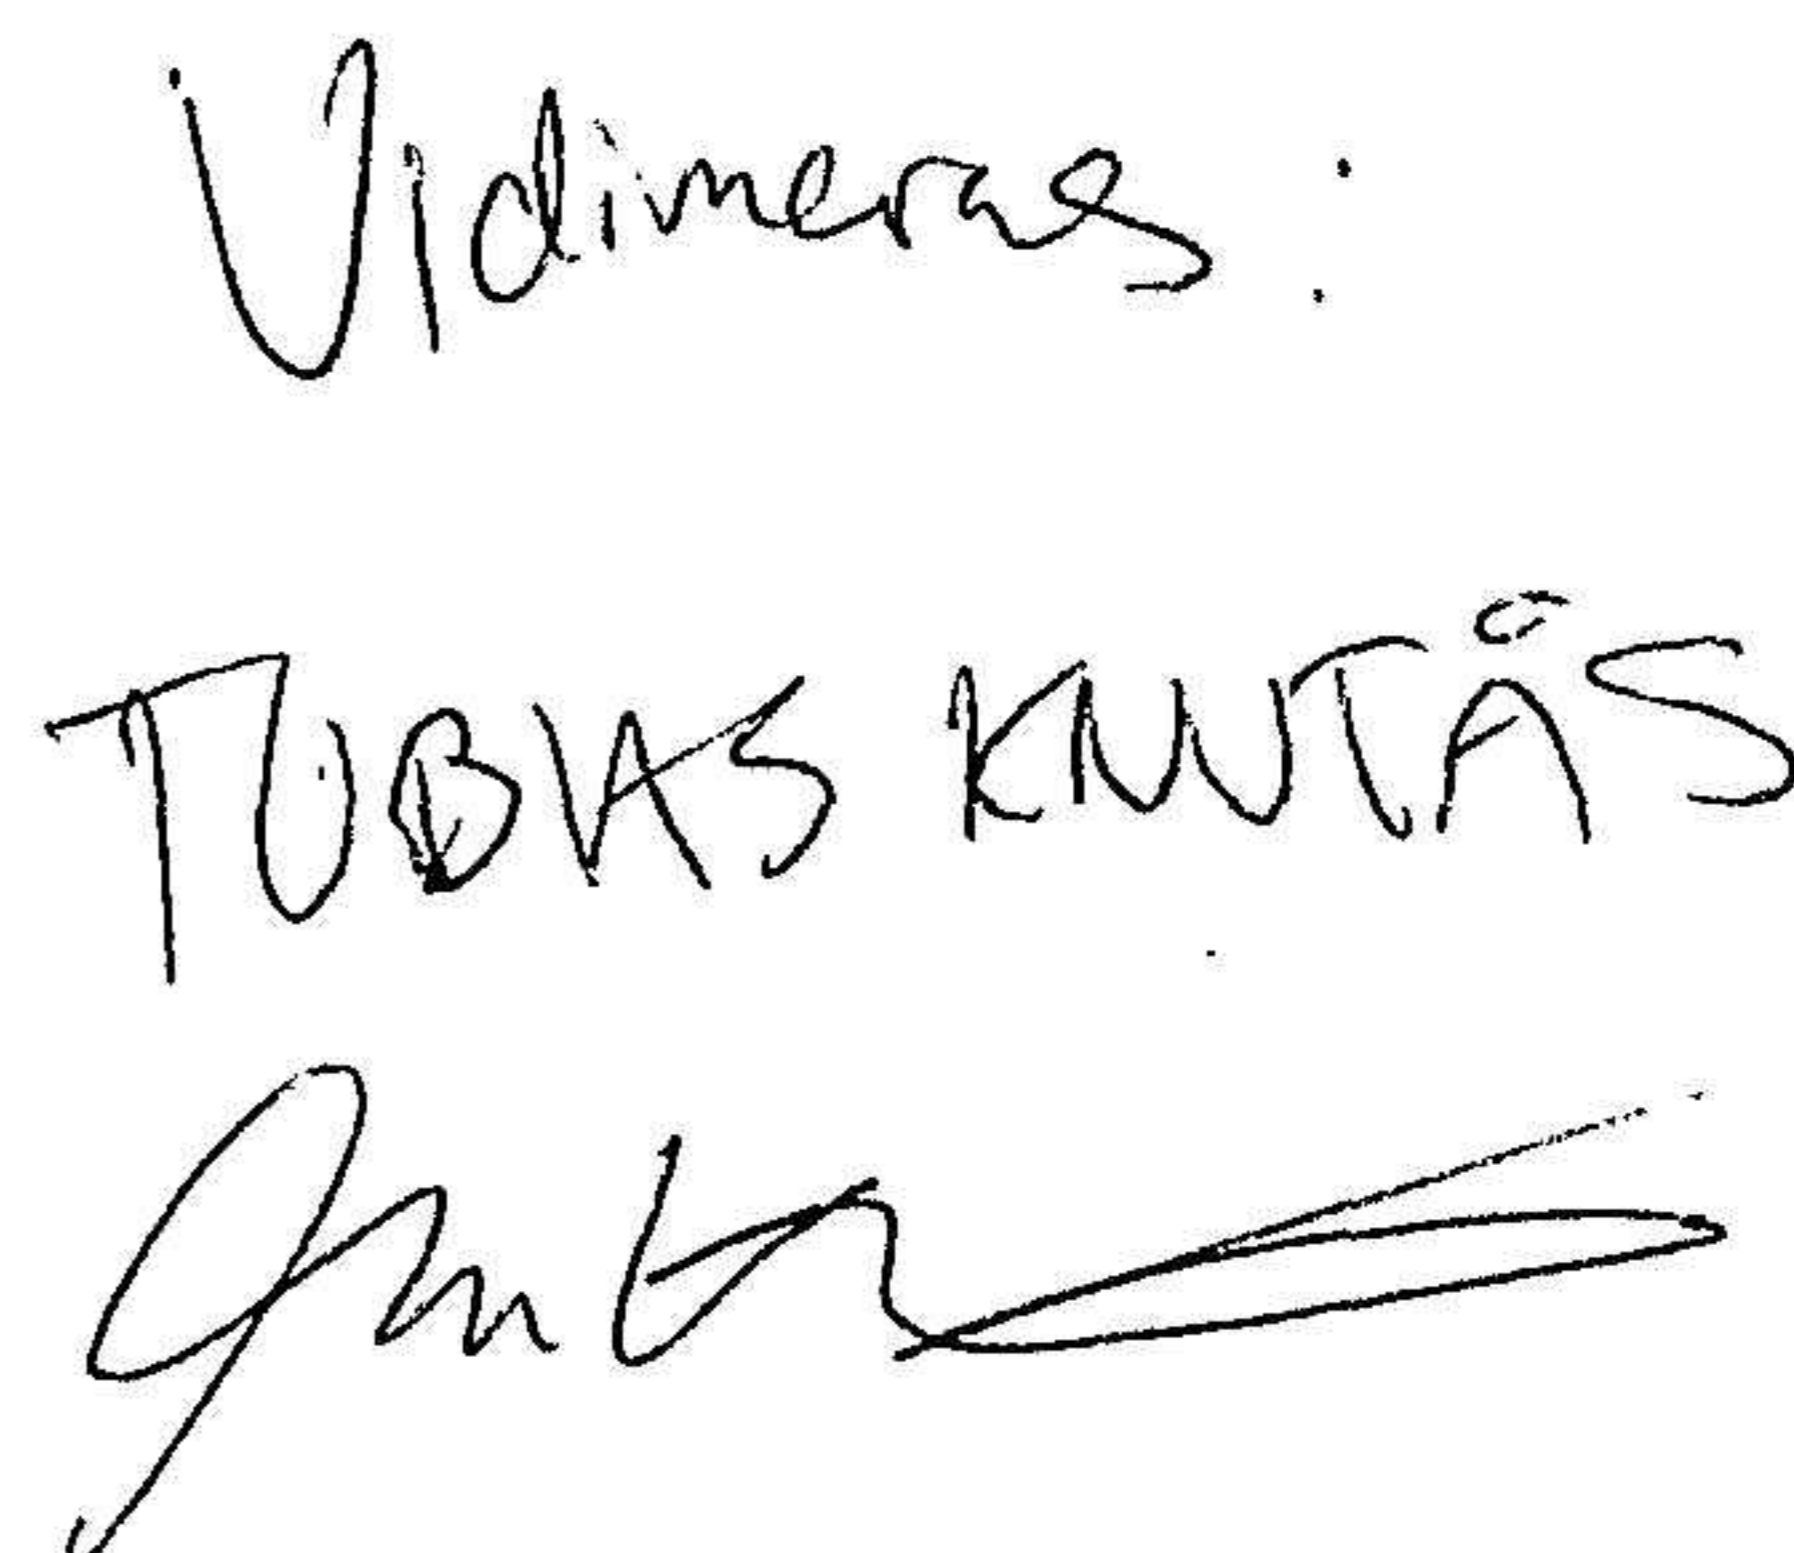 Vidimeras:
TOBIAS KNUTÅS